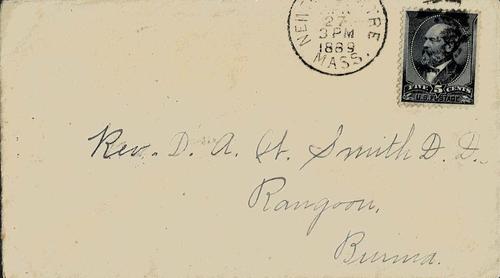 27
3 PM
1889
MASS.
FIVE 5 CENTS
U.S. POSTAGE
Rev. D. A. W. Smith D. D.,
Rangoon,
Burma.